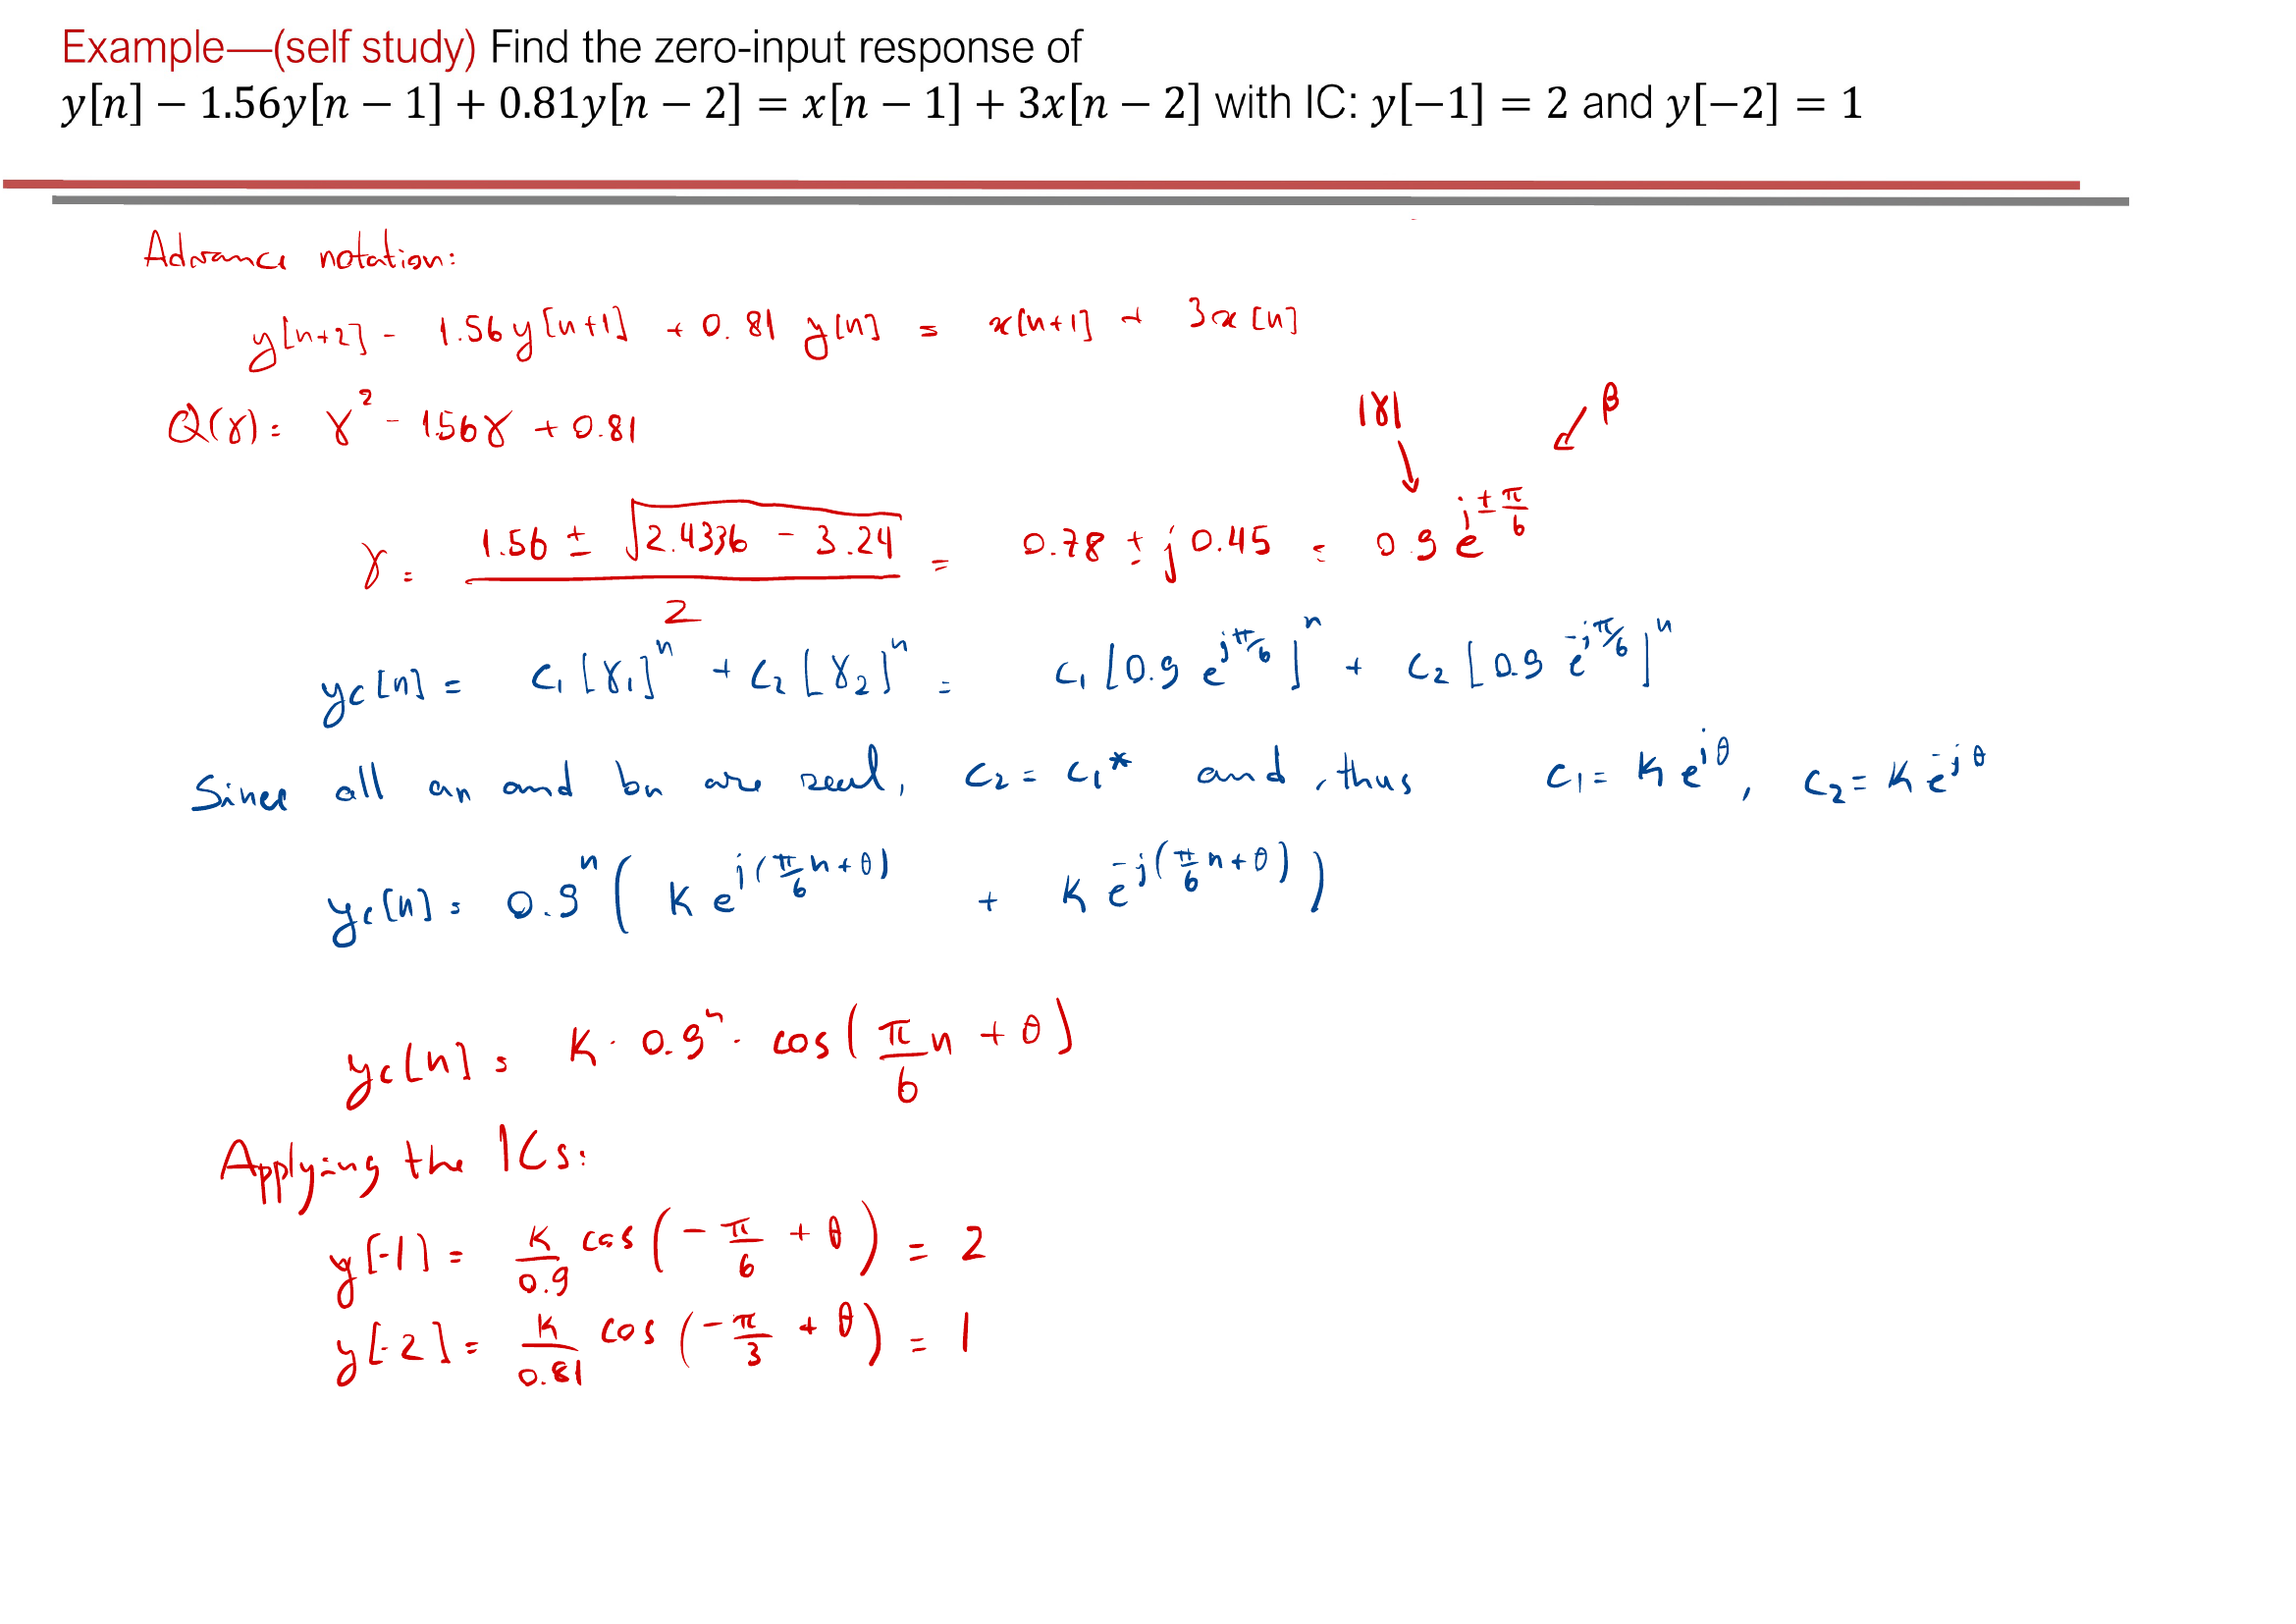 Example—(self study) Find the zero-input response of
y[n] − 1.56y[n − 1] + 0.81y[n − 2] = x[n − 1] + 3x[n − 2] with IC: y[−1] = 2 and y[−2] = 1
Advance notation:
y[n+2] - 1.56 y[n+1] + 0.81 y[n] = x[n+1] + 3x[n]
Q(γ): γ² - 1.56γ + 0.81
|γ| β
γ = (1.56 ± √(2.4336 - 3.24)) / 2 = 0.78 ± j 0.45 = 0.9 e^(j ± π/6)
yc[n] = c₁[γ₁]ⁿ + c₂[γ₂]ⁿ = c₁[0.9 e^(jπ/6)]ⁿ + c₂[0.9 e^(-jπ/6)]ⁿ
Since all an and bn are real, c₂ = c₁* and, thus c₁ = K e^(jθ), c₂ = K e^(-jθ)
yc[n] = 0.9ⁿ ( K e^(j(π/6 n + θ)) + K e^(-j(π/6 n + θ)) )
yc[n] = K · 0.9ⁿ · cos(π/6 n + θ)
Applying the ICs:
y[-1] = K/0.9 cos(-π/6 + θ) = 2
y[-2] = K/0.81 cos(-π/3 + θ) = 1